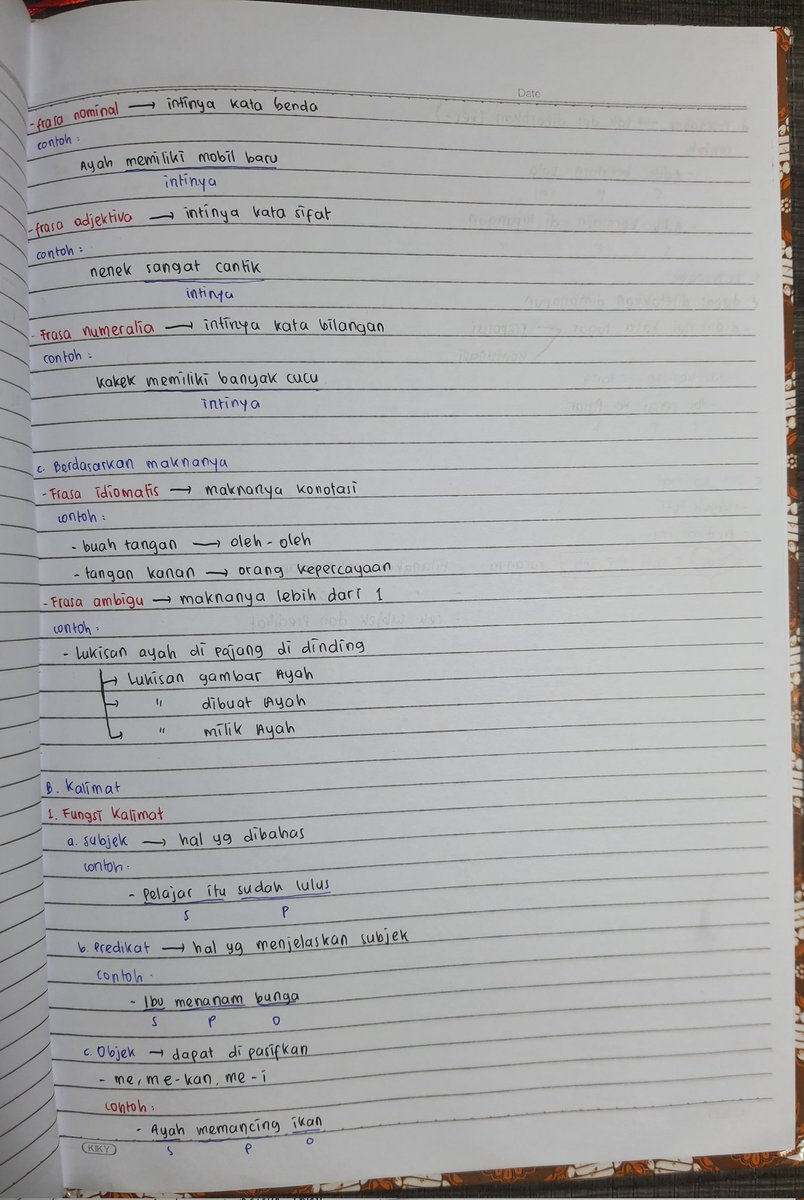 Date
- frasa nominal → intinya kata benda
contoh :
Ayah memiliki mobil baru
intinya
- frasa adjektiva → intinya kata sifat
contoh :
nenek sangat cantik
intinya
- Frasa numeralia → intinya kata bilangan
contoh :
kakek memiliki banyak cucu
intinya
c. Berdasarkan maknanya
- Frasa idiomatis → maknanya konotasi
contoh :
- buah tangan → oleh-oleh
- tangan kanan → orang kepercayaan
- Frasa ambigu → maknanya lebih dari 1
contoh :
- Lukisan ayah di pajang di dinding
→ Lukisan gambar Ayah
→ " dibuat Ayah
→ " milik Ayah
B. Kalimat
1. Fungsi Kalimat
a. subjek → hal yg dibahas
contoh :
- Pelajar itu sudah lulus
S P
b. Predikat → hal yg menjelaskan subjek
contoh :
- Ibu menanam bunga
S P O
c. Objek → dapat di pasifkan
- me, me-kan, me-i
contoh :
- Ayah memancing ikan
S P O
KIKY